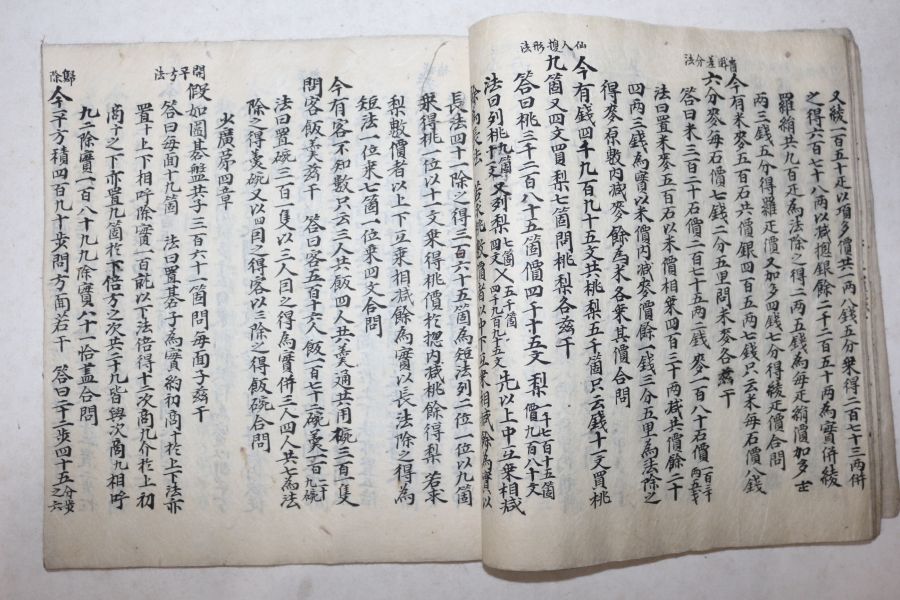 仙人換形法
貴賤差分法
又綾一百五十疋以項多價共一两八錢五分乗得二百七十三两併
之得六百七十八两以减摠銀餘二千二百五十两為實併綾
羅綃共九百疋為法除之得二两五錢為每疋綃價加多
两三錢五分得羅疋價又加多四錢七分得綾疋價合問
今有米麥五百石共價銀四百五两七錢只云米每石價八錢
六分麥每石價七錢二分五里問米麥各幾干
答曰米三百二十石價二百七十五两二錢 麥一百八十石價一百三十两五戋
法曰置米麥五百石以米價相乗四百三十两减共價餘二十
四两三錢為實以米價内减麥價餘一錢三分五里為法除之
得麥原數内减麥餘為米各乗其價合問
今有錢四千九百九十五文共桃梨五千箇只云錢十一文買桃
九箇又四文買梨七箇問桃梨各幾干
答曰桃三千二百八十五箇價四千十五文 梨一千七百十五箇價九百八十文
法曰列桃九箇十一文 又列梨七箇四文 乂五千箇四千九百九十五文 先以上中互乗相减
長法四十一除之得三百六十五箇為短法列二位一位以九箇
乗得桃一位以十一文乗得桃價於摠内减桃餘得梨 若求
梨數價者以上下互乗相减餘為實以長法除之得為
短法一位来七箇一位乗四文合問
今有客不知數只云三人共飯四人共羹通共用碗三百一隻
問客飯羹幾干 答曰客五百十六人飯一百七十二碗羹一百二十九碗
法曰置碗三百一隻以三人因之得為實併三人四人共七為法
除之得羹碗又以四因之得客以三除之得飯碗合問
少廣章四章
開平方法
假如圖碁盤共子三百六十一箇問每面子幾干
答曰每面十九箇 法曰置碁子為實約初商十於上下法亦
置十上下相呼除實一百就以下法倍得十二次商九介於上初
商十之下亦置九箇於下倍方之次共二十九皆與次商九相呼
九二除實一百八十九九除實八十一恰盡合問
歸除
今二平方積四百九十步問方面若干 答曰二十二步四十五分步之六